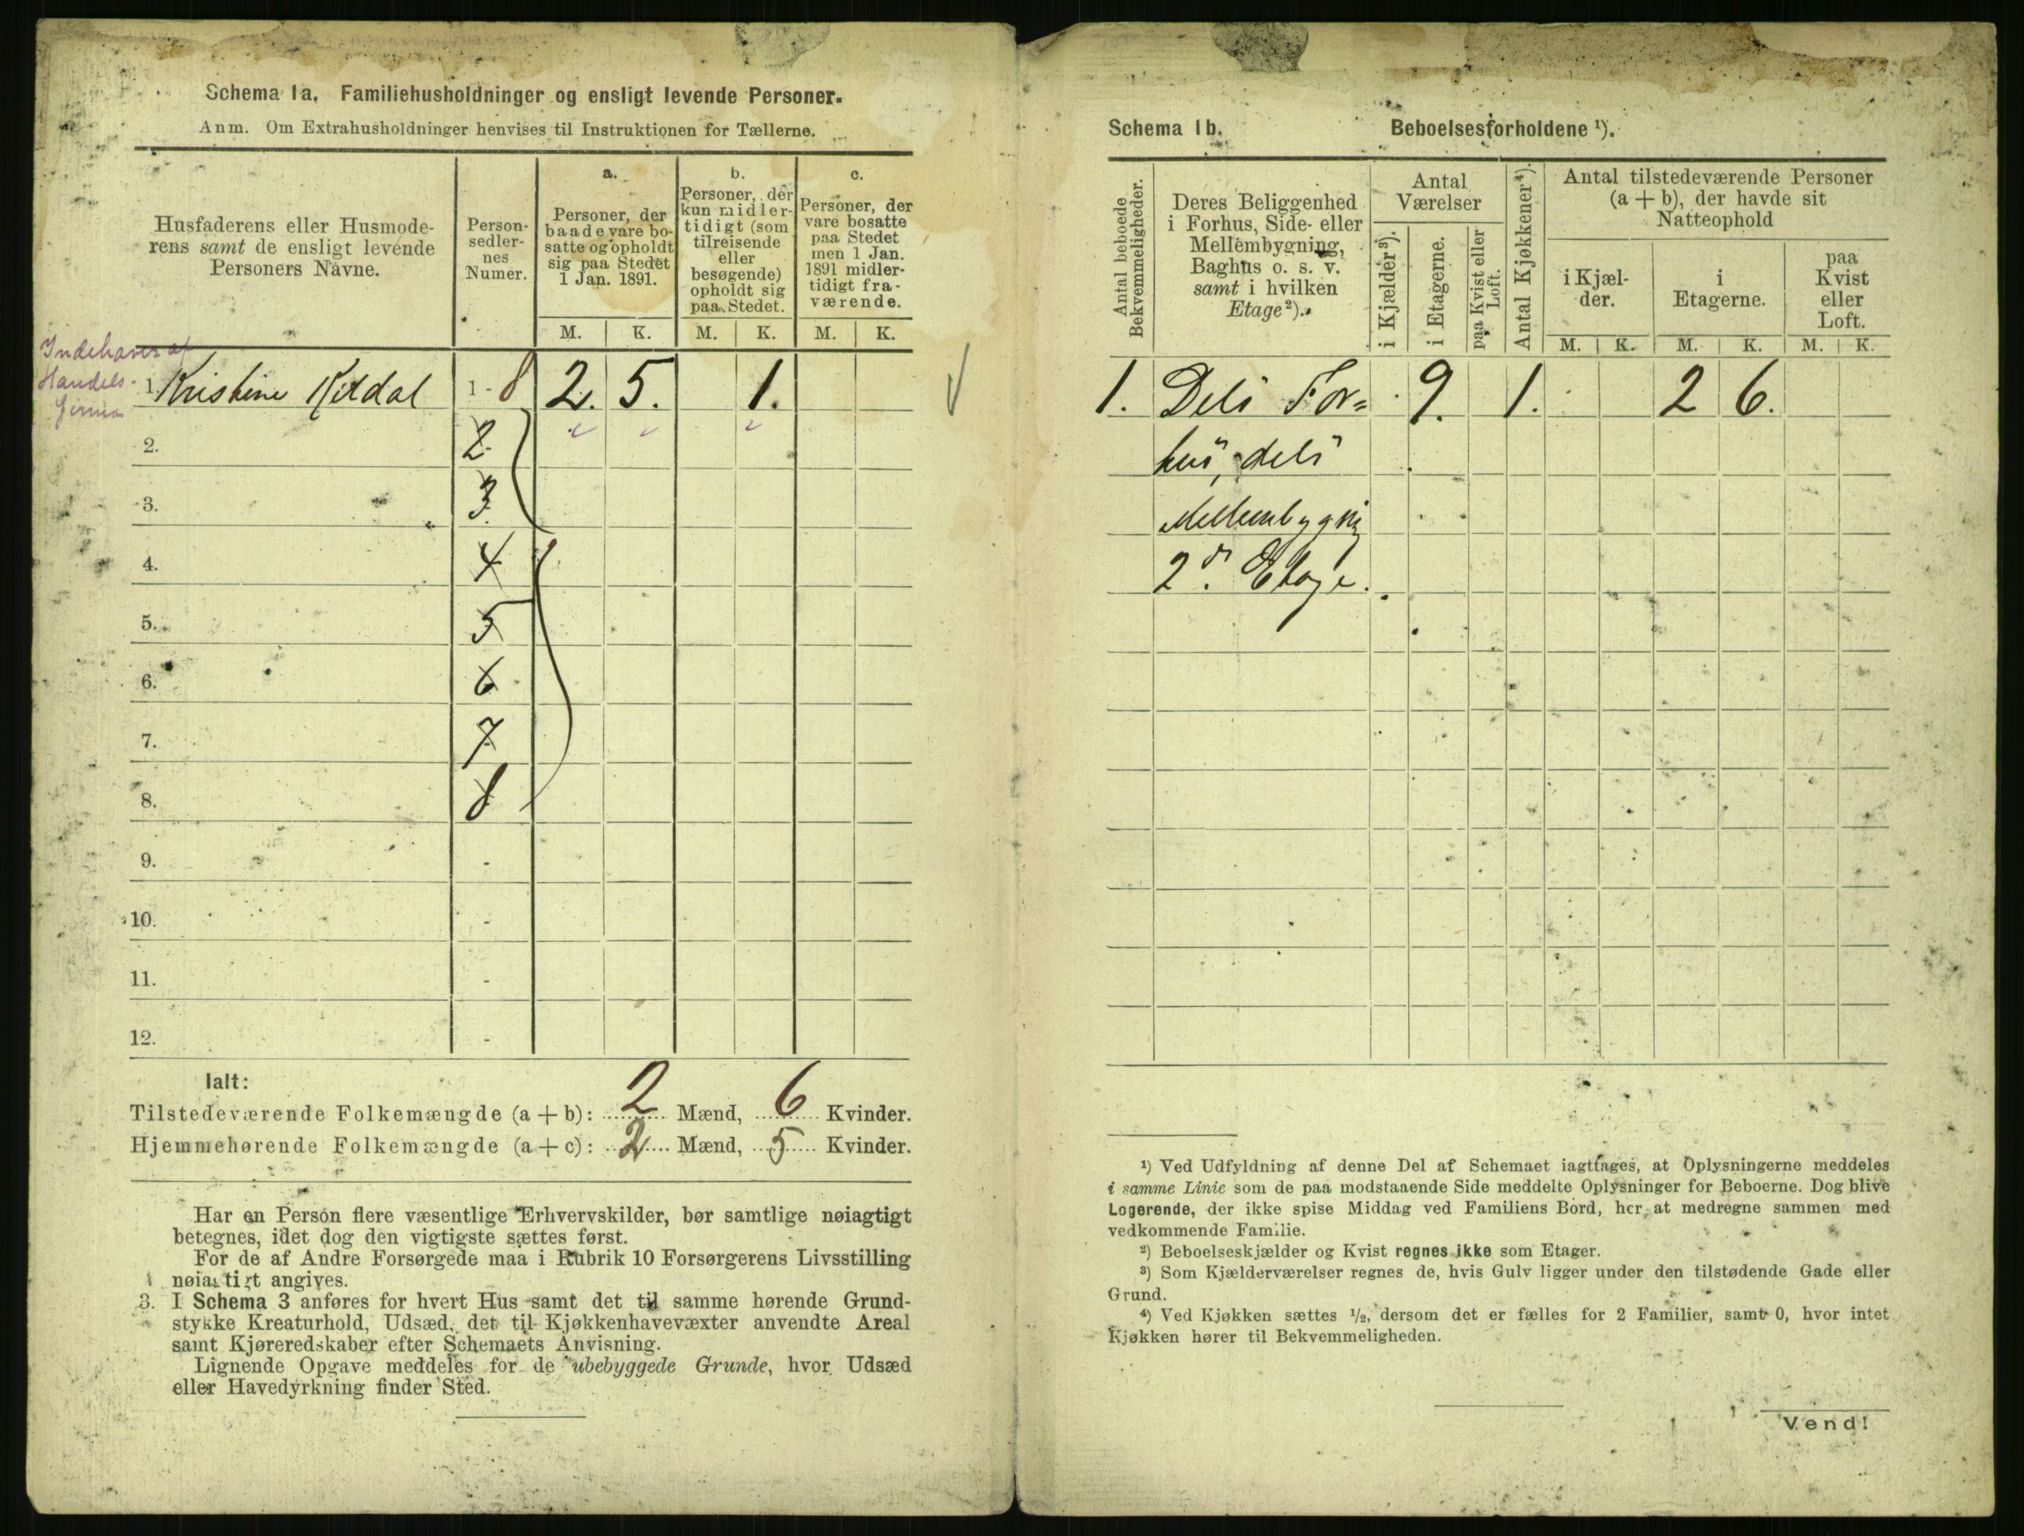 Schema 1a. Familiehusholdninger og ensligt levende Personer.
Anm. Om Extrahusholdninger henvises til Instruktionen for Tællerne.
Husfaderens eller Husmode-
rens samt de ensligt levende
Personers Navne.
Person-
sedler-
nes
Numer.
a.
Personer, der
baade vare bo-
satte og opholdt
sig paa Stedet
1 Jan. 1891.
b.
Personer, der
kun midler-
tidigt (som
tilreisende
eller
besøgende)
opholdt sig
paa Stedet.
c.
Personer, der
vare bosatte
paa Stedet
men 1 Jan.
1891 midler-
tidigt fra-
værende.
M. K. M. K. M. K.
Indehaver af
Handels-
Firma
1. Kristine Kildal 1 - 8 2. 5. 1.
2. 2
3. 3
4. 4
5. 5
6. 6
7. 7
8. 8
9. -
10. -
11. -
12. -
Ialt:
Tilstedeværende Folkemængde (a + b): 2 Mænd, 6 Kvinder.
Hjemmehørende Folkemængde (a + c): 2 Mænd, 5 Kvinder.
Har en Person flere væsentlige Erhvervskilder, bør samtlige nøiagtigt
betegnes, idet dog den vigtigste sættes først.
For de af Andre Forsørgede maa i Rubrik 10 Forsørgerens Livsstilling
nøiagtigt angives.
3. I Schema 3 anføres for hvert Hus samt det til samme hørende Grund-
stykke Kreaturhold, Udsæd, det til Kjøkkenhavevæxter anvendte Areal
samt Kjøreredskaber efter Schemaets Anvisning.
Lignende Opgave meddeles for de ubebyggede Grunde, hvor Udsæd
eller Havedyrkning finder Sted.
Schema 1b. Beboelsesforholdene ¹).
Antal beboede
Bekvemmeligheder.
Deres Beliggenhed
i Forhus, Side- eller
Mellembygning,
Baghus o. s. v.
samt i hvilken
Etage²).
Antal
Værelser
i Kjælder³).
i Etagerne.
paa Kvist eller
Loft.
Antal Kjøkkener⁴).
Antal tilstedeværende Personer
(a + b), der havde sit
Natteophold
i Kjæl-
der.
i
Etagerne.
paa
Kvist
eller
Loft.
M. K. M. K. M. K.
1. Dels For= 9. 1. 2 6.
hus, dels
Mellembygning
2. Etage.
¹) Ved Udfyldning af denne Del af Schemaet iagttages, at Oplysningerne meddeles
i samme Linie som de paa modstaaende Side meddelte Oplysninger for Beboerne. Dog blive
Logerende, der ikke spise Middag ved Familiens Bord, her at medregne sammen med
vedkommende Familie.
²) Beboelseskjælder og Kvist regnes ikke som Etager.
³) Som Kjælderværelser regnes de, hvis Gulv ligger under den tilstødende Gade eller
Grund.
⁴) Ved Kjøkken sættes ½, dersom det er fælles for 2 Familier, samt 0, hvor intet
Kjøkken hører til Bekvemmeligheden.
Vend!